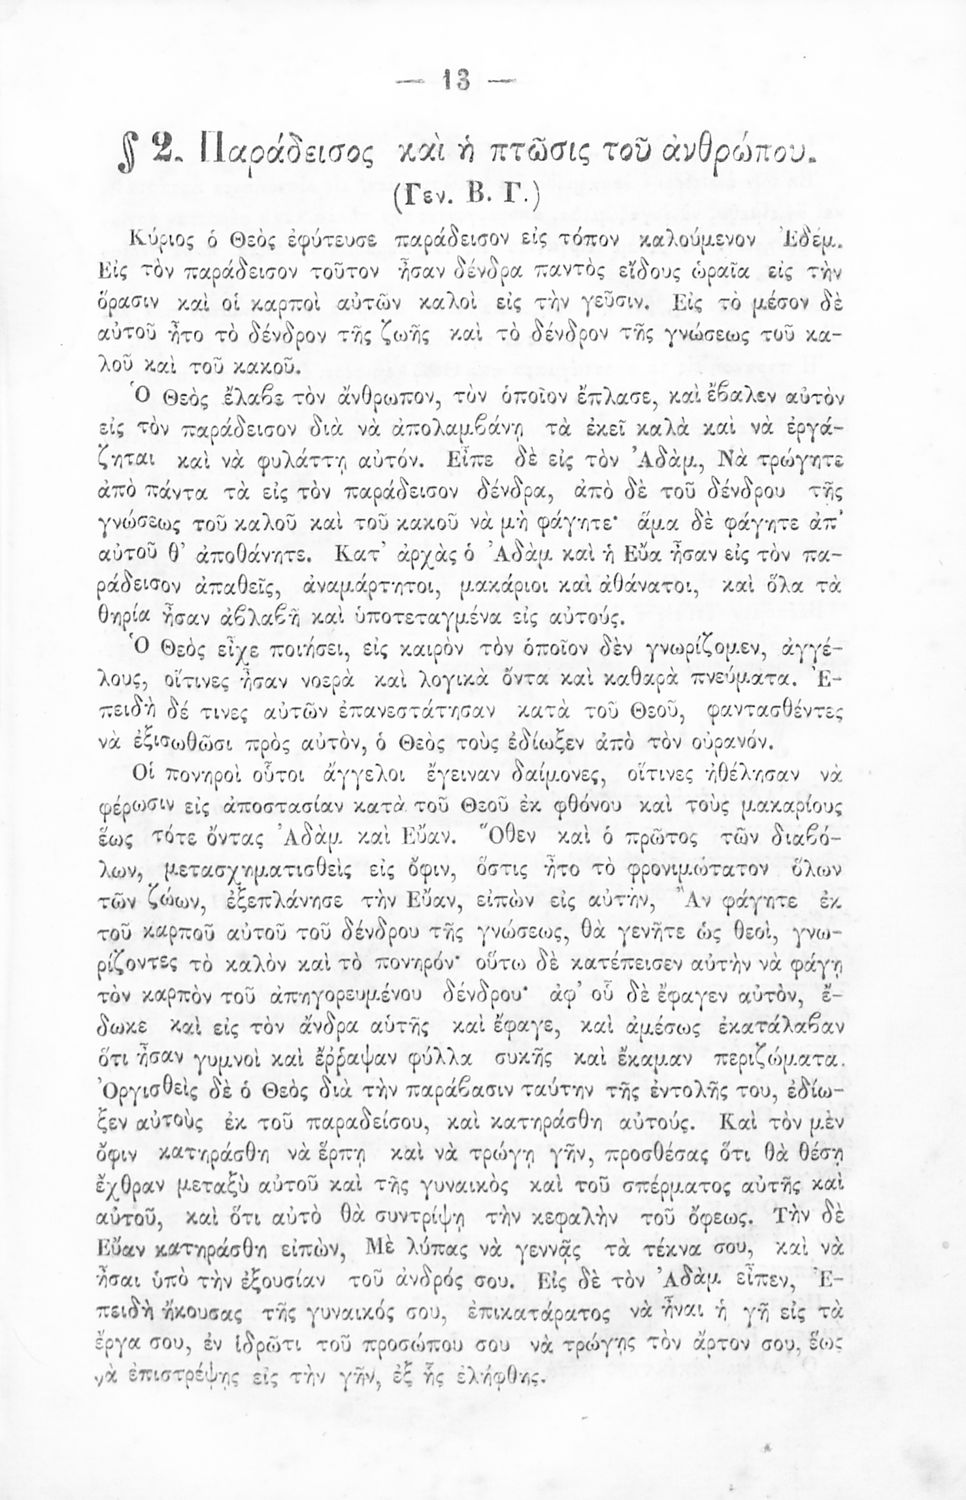 — 13 —
§ 2. Παράδεισος καὶ ἡ πτῶσις τοῦ ἀνθρώπου.
(Γεν. Β. Γ.)
Κύριος ὁ Θεὸς ἐφύτευσε παράδεισον εἰς τόπον καλούμενον Ἐδέμ.
Εἰς τὸν παράδεισον τοῦτον ἦσαν δένδρα παντὸς εἴδους ὡραῖα εἰς τὴν
ὅρασιν καὶ οἱ καρποὶ αὐτῶν καλοὶ εἰς τὴν γεῦσιν. Εἰς τὸ μέσον δὲ
αὐτοῦ ἦτο τὸ δένδρον τῆς ζωῆς καὶ τὸ δένδρον τῆς γνώσεως τοῦ κα-
λοῦ καὶ τοῦ κακοῦ.
Ὁ Θεὸς ἔλαβε τὸν ἄνθρωπον, τὸν ὁποῖον ἔπλασε, καὶ ἔβαλεν αὐτὸν
εἰς τὸν παράδεισον διὰ νὰ ἀπολαμβάνῃ τὰ ἐκεῖ καλὰ καὶ νὰ ἐργά-
ζηται καὶ νὰ φυλάττῃ αὐτόν. Εἶπε δὲ εἰς τὸν Ἀδὰμ, Νὰ τρώγητε
ἀπὸ πάντα τὰ εἰς τὸν παράδεισον δένδρα, ἀπὸ δὲ τοῦ δένδρου τῆς
γνώσεως τοῦ καλοῦ καὶ τοῦ κακοῦ νὰ μὴ φάγητε· ἅμα δὲ φάγητε ἀπ'
αὐτοῦ θ' ἀποθάνητε. Κατ' ἀρχὰς ὁ Ἀδὰμ καὶ ἡ Εὔα ἦσαν εἰς τὸν πα-
ράδεισον ἀπαθεῖς, ἀναμάρτητοι, μακάριοι καὶ ἀθάνατοι, καὶ ὅλα τὰ
θηρία ἦσαν ἀβλαβῆ καὶ ὑποτεταγμένα εἰς αὐτούς.
Ὁ Θεὸς εἶχε ποιήσει, εἰς καιρὸν τὸν ὁποῖον δὲν γνωρίζομεν, ἀγγέ-
λους, οἵτινες ἦσαν νοερὰ καὶ λογικὰ ὄντα καὶ καθαρὰ πνεύματα. Ἐ-
πειδὴ δέ τινες αὐτῶν ἐπανεστάτησαν κατὰ τοῦ Θεοῦ, φαντασθέντες
νὰ ἐξισωθῶσι πρὸς αὐτὸν, ὁ Θεὸς τοὺς ἐδίωξεν ἀπὸ τὸν οὐρανόν.
Οἱ πονηροὶ οὗτοι ἄγγελοι ἔγειναν δαίμονες, οἵτινες ἠθέλησαν νὰ
φέρωσιν εἰς ἀποστασίαν κατὰ τοῦ Θεοῦ ἐκ φθόνου καὶ τοὺς μακαρίους
ἕως τότε ὄντας Ἀδὰμ καὶ Εὔαν. Ὅθεν καὶ ὁ πρῶτος τῶν διαβό-
λων, μετασχηματισθεὶς εἰς ὄφιν, ὅστις ἦτο τὸ φρονιμώτατον ὅλων
τῶν ζώων, ἐξεπλάνησε τὴν Εὔαν, εἰπὼν εἰς αὐτὴν, Ἂν φάγητε ἐκ
τοῦ καρποῦ αὐτοῦ τοῦ δένδρου τῆς γνώσεως, θὰ γενῆτε ὡς θεοὶ, γνω-
ρίζοντες τὸ καλὸν καὶ τὸ πονηρόν· οὕτω δὲ κατέπεισεν αὐτὴν νὰ φάγῃ
τὸν καρπὸν τοῦ ἀπηγορευμένου δένδρου· ἀφ' οὗ δὲ ἔφαγεν αὐτὸν, ἔ-
δωκε καὶ εἰς τὸν ἄνδρα αὑτῆς καὶ ἔφαγε, καὶ ἀμέσως ἐκατάλαβαν
ὅτι ἦσαν γυμνοὶ καὶ ἔῤῥαψαν φύλλα συκῆς καὶ ἔκαμαν περιζώματα.
Ὀργισθεὶς δὲ ὁ Θεὸς διὰ τὴν παράβασιν ταύτην τῆς ἐντολῆς του, ἐδίω-
ξεν αὐτοὺς ἐκ τοῦ παραδείσου, καὶ κατηράσθη αὐτούς. Καὶ τὸν μὲν
ὄφιν κατηράσθη νὰ ἕρπῃ καὶ νὰ τρώγῃ γῆν, προσθέσας ὅτι θὰ θέσῃ
ἔχθραν μεταξὺ αὐτοῦ καὶ τῆς γυναικὸς καὶ τοῦ σπέρματος αὐτῆς καὶ
αὐτοῦ, καὶ ὅτι αὐτὸ θὰ συντρίψῃ τὴν κεφαλὴν τοῦ ὄφεως. Τὴν δὲ
Εὔαν κατηράσθη εἰπὼν, Μὲ λύπας νὰ γεννᾷς τὰ τέκνα σου, καὶ νὰ
ἦσαι ὑπὸ τὴν ἐξουσίαν τοῦ ἀνδρός σου. Εἰς δὲ τὸν Ἀδὰμ εἶπεν, Ἐ-
πειδὴ ἤκουσας τῆς γυναικός σου, ἐπικατάρατος νὰ ἦναι ἡ γῆ εἰς τὰ
ἔργα σου, ἐν ἱδρῶτι τοῦ προσώπου σου νὰ τρώγῃς τὸν ἄρτον σου, ἕως
νὰ ἐπιστρέψῃς εἰς τὴν γῆν, ἐξ ἧς ἐλήφθης.